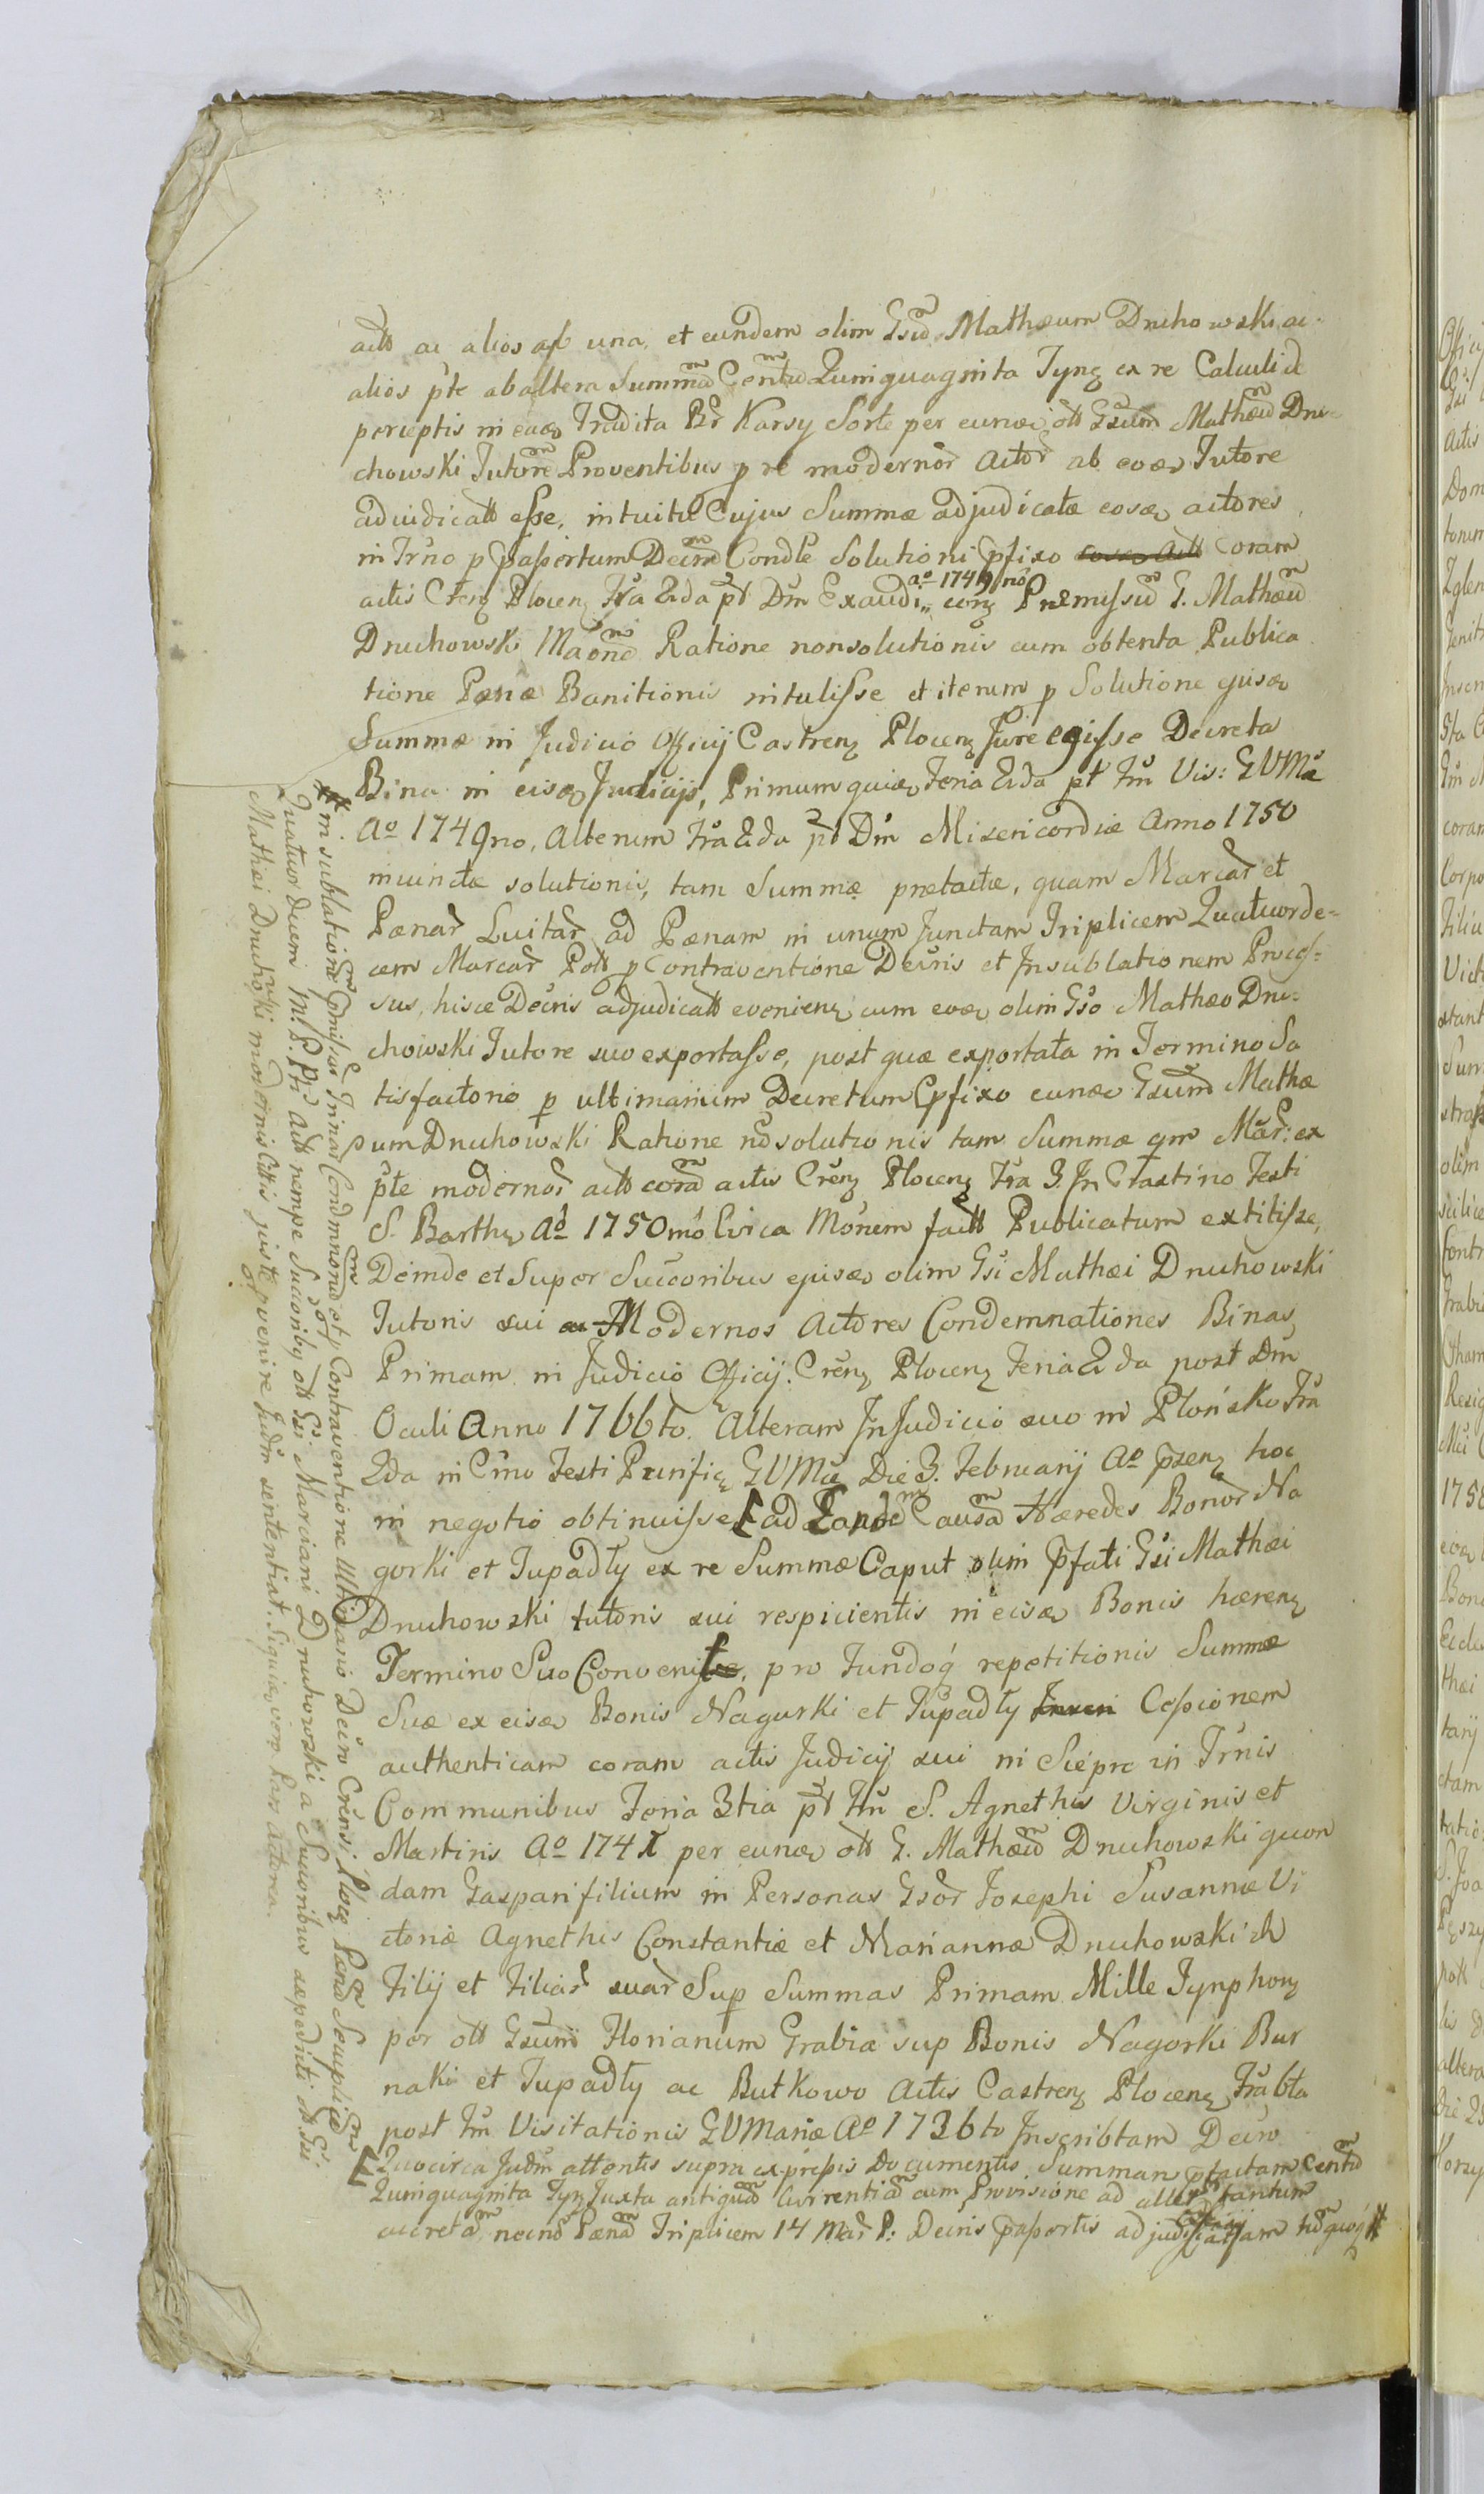 actt ac alios ab una, et eundem olim Gsūm Mathæum Druhowski, ac
alios pte ab altera Summam Centum Quinquaginta Tynf ex re Calculi de
perceptis in eadem Tradita Br Karsy Sorte per eundem ott Gsūm Mathæum Dru-
chowski Tutorem Proventibus p re modernor Actor ab eodem Tutore
adiudicatt esse, intuitu Cujus Summæ adjudicatæ eosdem actores
in Trno p ppassertum Decrm Condle Solutioni ppfixo coram
actis Crenz Plocenz Fra 2da pt Dm Exaudi: ao 1749no conz Præmissum G. Mathæum
Druchowski Maonem Ratione nonsolutionis cum obtenta Publica
tione Pænæ Banitionis intulisse et iterum p Solutione ejusdem
Summæ in Judicio Officij Castrenz Plocenz Jure egisse Decreta
Bina in eisdem Judicijs, Primum quidem Feria 2da pt Fm Vis: GVMæ
Ao 1749no, Alterum Fra 2da pt Dm Misericordiæ Anno 1750
iniunctæ solutionis, tam Summæ prætactæ, quam Marcar et
Pænar Luitar ad Pænam in unum Junctam Triplicem Quatuorde-
cem Marcar Pott p Contraventione Decris et Insublationem Proces-
sus, hisce Decris adjudicatt evenienz cum eodem olim Gso Mathæo Dru-
chowski Tutore suo exportasse, post quæ exportata in Termino Sa
tisfactorio p ultimarium Decretum ppfixo eundem Gsūm Mathæ
um Druchowski Ratione nosolutionis tam Summæ qm Mar: ex
pte modernor actt coram actis Crenz Plocenz Fra 3. In Crastino Festi
S. Barth. Ao 1750mo Circa Monem factt Publicatum extitisse,
Deinde et Super Succoribus ejusdem olim Gsi Mathæi Druchowski
Tutoris sui Modernos Actores Condemnationes Binas,
Primam in Judicio Officij Crenz Plocenz Feria 2da post Dm
Oculi Anno 1766to. Alteram In Judicio suo in Płońsko Fra
2da in Cino Festi Purific GVMæ Die 3. Februarij Ao præsenz hoc
in negotio obtinuisse ad Eandem Causam Hæredes Bonor Na
gorki et Tupadły ex re Summæ Caput olim ppfati Gsi Mathæi
Druhowski tutoris sui respicientis in eisdem Bonis hærenz
Termino Suo Convenisse, pro Fundoq repetitionis Summæ
Suæ ex eisdem Bonis Nagurki et Tupadły Cessionem
authenticam coram actis Judicij sui in Sieprc in Trnis
Communibus Feria 3tia pt Fm S. Agnethis Virginis et
Martiris Ao 174X per eundem ott G. Mathæum Druhowski quon
dam Gaspari filium in Personas Gsor Josephi Susannæ Vi
ctoriæ Agnethis Constantiæ et Mariannæ Druhowskich
Filij et Filiar suar Sup Summas Primam Mille Tynphonz
per ott Gsūm Florianum Grabia sup Bonis Nagorki Bur
naki et Tupadły ac Butkowo Actis Castrenz Plocenz Fra 6ta
post Fm Visitationis GVMariæ Ao 1736to Inscribtam Decro
Quocirca Judm attentis supra expressis Documentis Summam ptactam Centum
Quinquaginta Tynf Juxta antiquam Currentiam cum Provisione ad alter tantum
accretam necnon Pænam Triplicem 14 Mar P: Decris passertis adjudicatam tidquoq #
# in sublationem Trinar Condmnonum et Contraventione Ultimario Decro Crensi Plocz Pænam Sexuplicem
Quatuordecem M. P. Pti Actt nempe Succoriby ott Gsi Marciani Druhowski a Succoribus sæpedicti ott Gsi
Mathæi Druhowski modernis Cittis juste pvenire Judm sentential. Siquidem vero Pars Actorea.